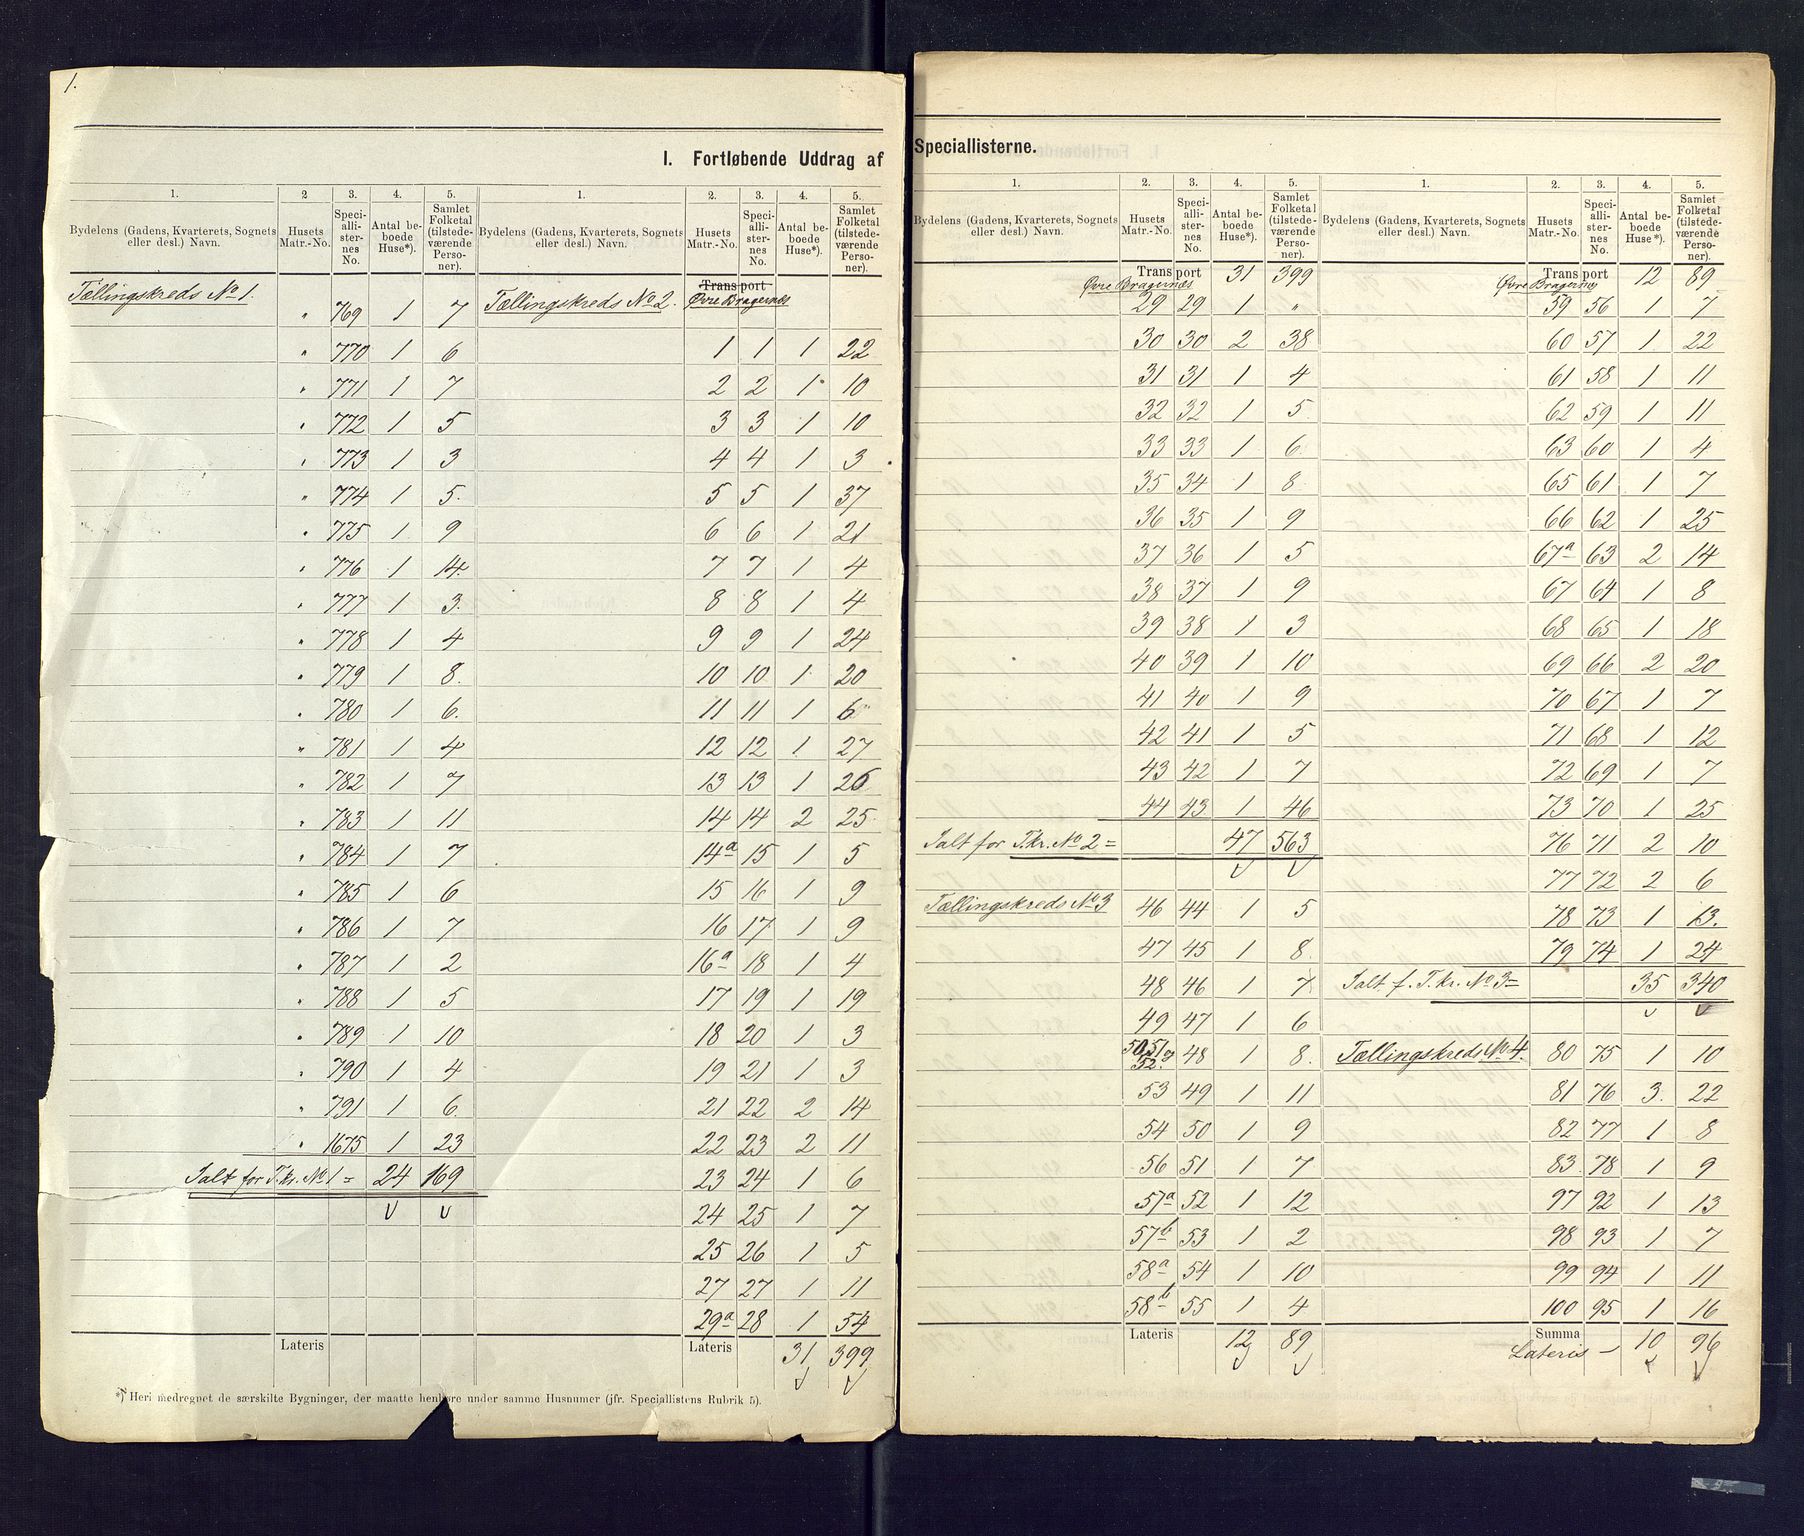 1.
I. Fortløbende Uddrag af
1. 2 3. 4. 5. 1. 2. 3. 4. 5.
Bydelens (Gadens, Kvarterets, Sognets eller desl.) Navn. Husets Matr.-No. Speciallisternes No. Antal beboede Huse*). Samlet Folketal (tilstedeværende Personer). Bydelens (Gadens, Kvarterets, Sognets eller desl.) Navn. Husets Matr.-No. Speciallisternes No. Antal beboede Huse*). Samlet Folketal (tilstedeværende Personer).
Transport
Tællingskreds No 1. " 769 1 7 Tællingskreds No 2. Øvre Bragernæs
" 770 1 6 1 1 1 22
" 771 1 7 2 2 1 10
" 772 1 5 3 3 1 10
" 773 1 3 4 4 1 3
" 774 1 5 5 5 1 37
" 775 1 9 6 6 1 21
" 776 1 14 7 7 1 4
" 777 1 3 8 8 1 4
" 778 1 4 9 9 1 24
" 779 1 8 10 10 1 20
" 780 1 6 11 11 1 6
" 781 1 4 12 12 1 27
" 782 1 7 13 13 1 26
" 783 1 11 14 14 2 25
" 784 1 7 14a 15 1 5
" 785 1 6 15 16 1 9
" 786 1 7 16 17 1 9
" 787 1 2 16a 18 1 4
" 788 1 5 17 19 1 19
" 789 1 10 18 20 1 3
" 790 1 4 19 21 1 3
" 791 1 6 21 22 2 14
" 1675 1 23 22 23 2 11
Ialt for T.kr. No 1 = 24 169 23 24 1 6
24 25 1 7
25 26 1 5
27 27 1 11
29a 28 1 54
Lateris Lateris 31 399
*) Heri medregnet de særskilte Bygninger, der maatte henhøre under samme Husnumer (jfr. Speciallistens Rubrik 5).
Speciallisterne.
1. 2. 3. 4. 5. 1. 2. 3. 4. 5.
Bydelens (Gadens, Kvarterets, Sognets eller desl.) Navn. Husets Matr.-No. Speciallisternes No. Antal beboede Huse*). Samlet Folketal (tilstedeværende Personer). Bydelens (Gadens, Kvarterets, Sognets eller desl.) Navn. Husets Matr.-No. Speciallisternes No. Antal beboede Huse*). Samlet Folketal (tilstedeværende Personer).
Transport 31 399 Transport 12 89
Øvre Bragernæs Øvre Bragernæs
29 29 1 " 59 56 1 7
30 30 2 38 60 57 1 22
31 31 1 4 61 58 1 11
32 32 1 5 62 59 1 11
33 33 1 6 63 60 1 4
35 34 1 8 65 61 1 7
36 35 1 9 66 62 1 25
37 36 1 5 67a 63 2 14
38 37 1 9 67 64 1 8
39 38 1 3 68 65 1 18
40 39 1 10 69 66 2 20
41 40 1 9 70 67 1 7
42 41 1 5 71 68 1 12
43 42 1 7 72 69 1 7
44 43 1 46 73 70 1 25
Ialt for T.kr. No 2 = 47 563 76 71 2 10
77 72 2 6
Tællingskreds No 3 46 44 1 5 78 73 1 13.
47 45 1 8 79 74 1 24
48 46 1 7 Ialt f. T.kr. No 3 = 35 340
49 47 1 6
50, 51 og 52. 48 1 8. Tællingskreds No 4. 80 75 1 10
53 49 1 11 81 76 3 22
54 50 1 9 82 77 1 8
56 51 1 7 83 78 1 9
57a 52 1 12 97 92 1 13
57b 53 1 2 98 93 1 7
58a 54 1 10 99 94 1 11
58b 55 1 4 100 95 1 16
Lateris 12 89 Summa 10 96
Lateris